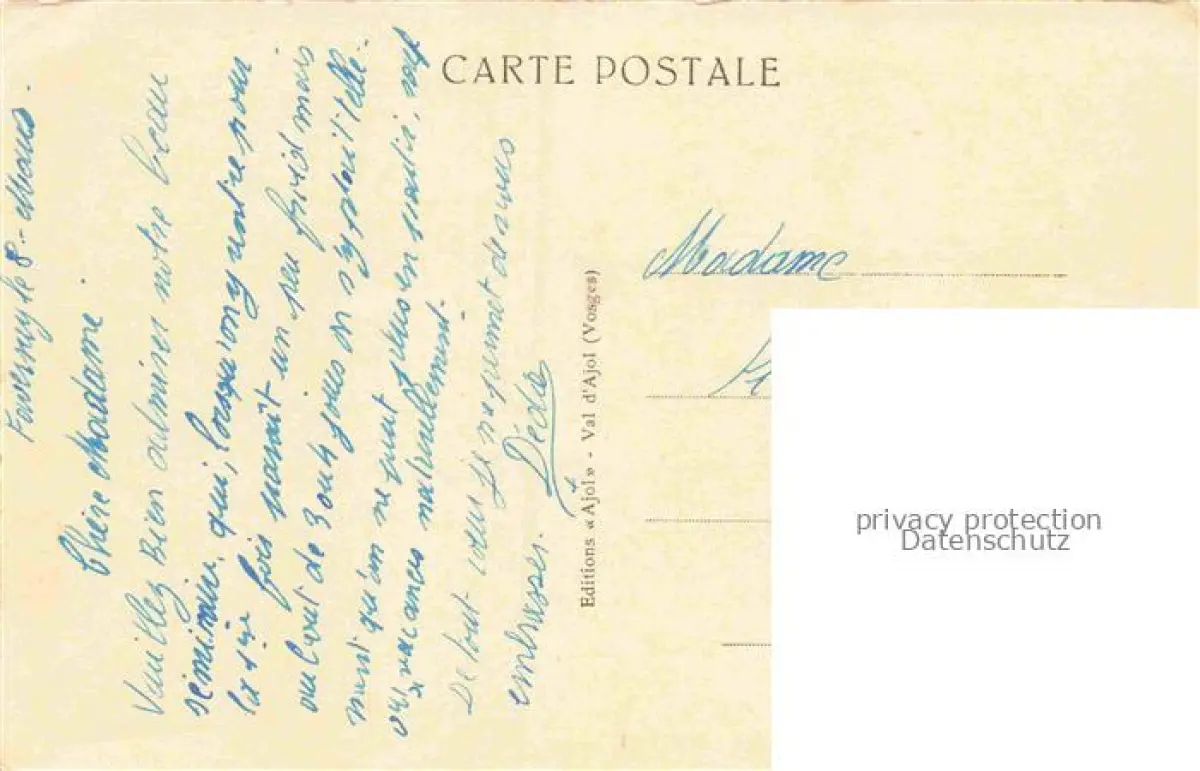 CARTE POSTALE
Faverney le 8 - Mars.
Chère Madame
Veuillez bien admirer notre beau
séminaire qui, lorsqu'on y entre pour
la 1ère fois paraît un peu froid mais
au bout de 3 ou 4 jours on s'y plaît telle-
ment qu'on ne peut plus en sortir, sauf
aux vacances naturellement.
De tout cœur je me permet de vous
embrasser.
Dédé
Editions «Ajol» - Val d'Ajol (Vosges)
Madame
privacy protection
Datenschutz